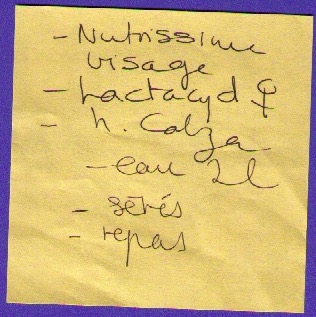 - Nutrissime
visage
- Lactacyd ♀
- h. Calza
- eau 2l
- sérés
- repas